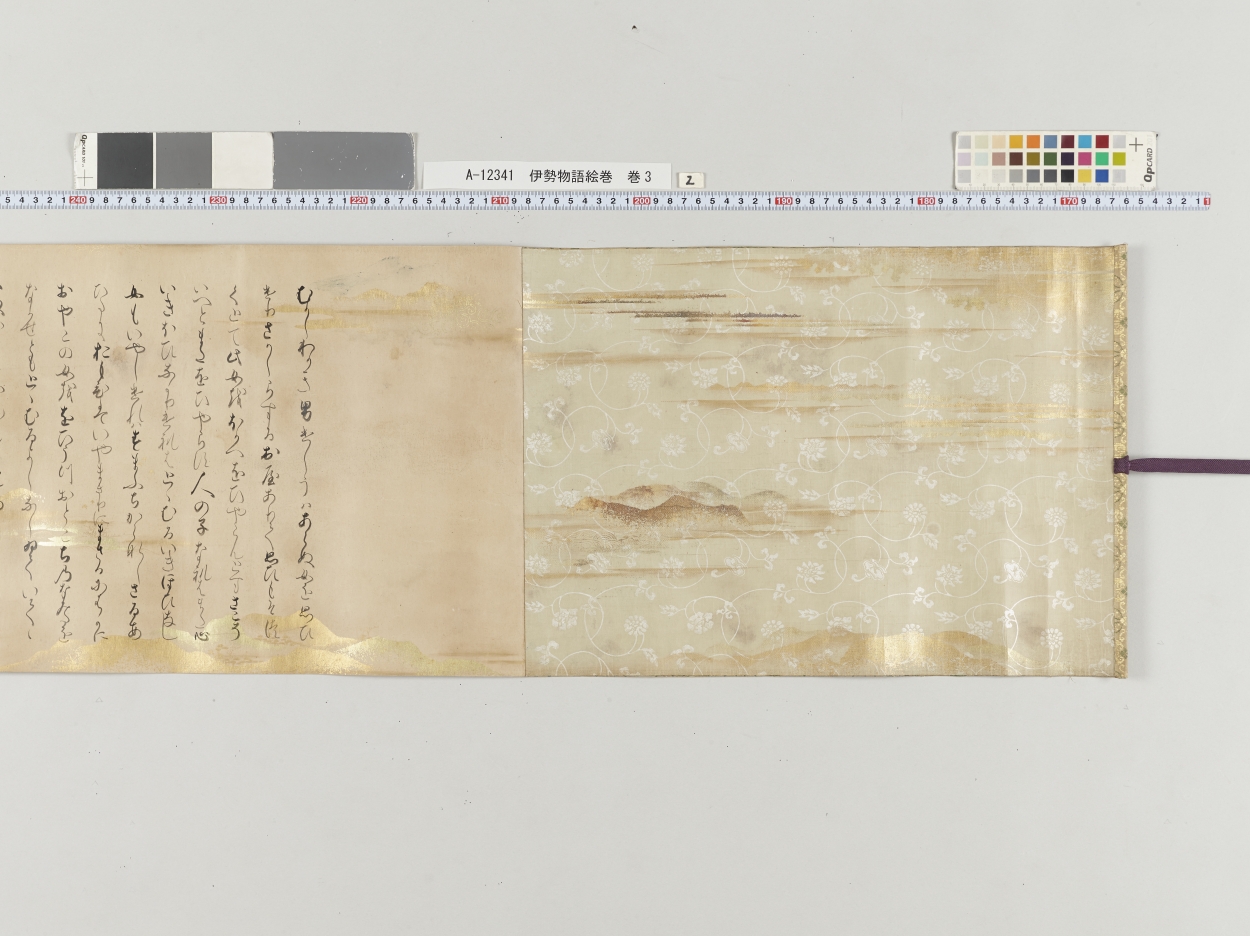 A-12341　伊勢物語絵巻　巻3
2
QPCARD
むかしわかき男けしうハあらぬ女を思ひ
けりさかしらするお屋ありて思ひもそつ
くとて此女をほかへをひやらんとすさこそ
いへとまたをひやらす人の子なれはまた心
いきおひなかりけれはとゝむるいきほひなし
女もいやしけれはすまふちからなしさるあ
ひたにおもひはいやまさりにまさるにはかに
おやこの女ををひうつおとこちのなみたを
なかせともとゝむるよしなしゐていて